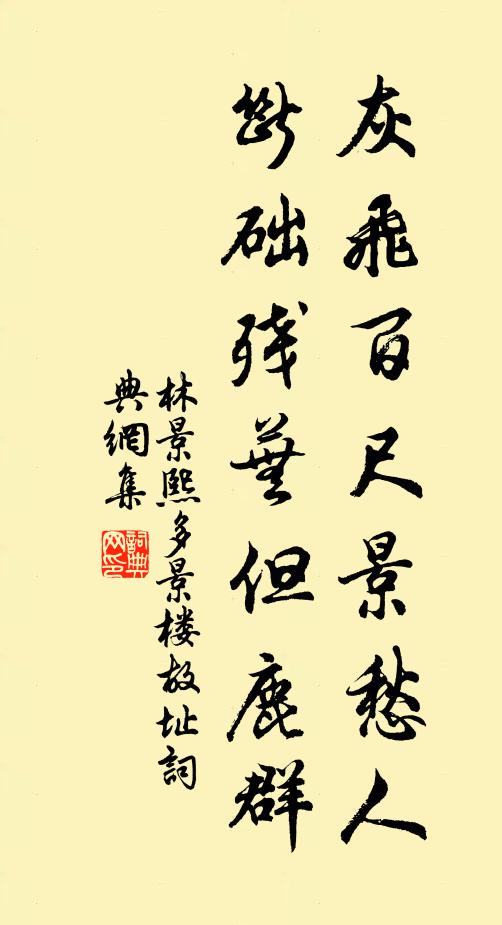 灰飛百尺景愁人
断础残芜但鹿群
林景熙多景楼故址詞
典網集
詞典网印